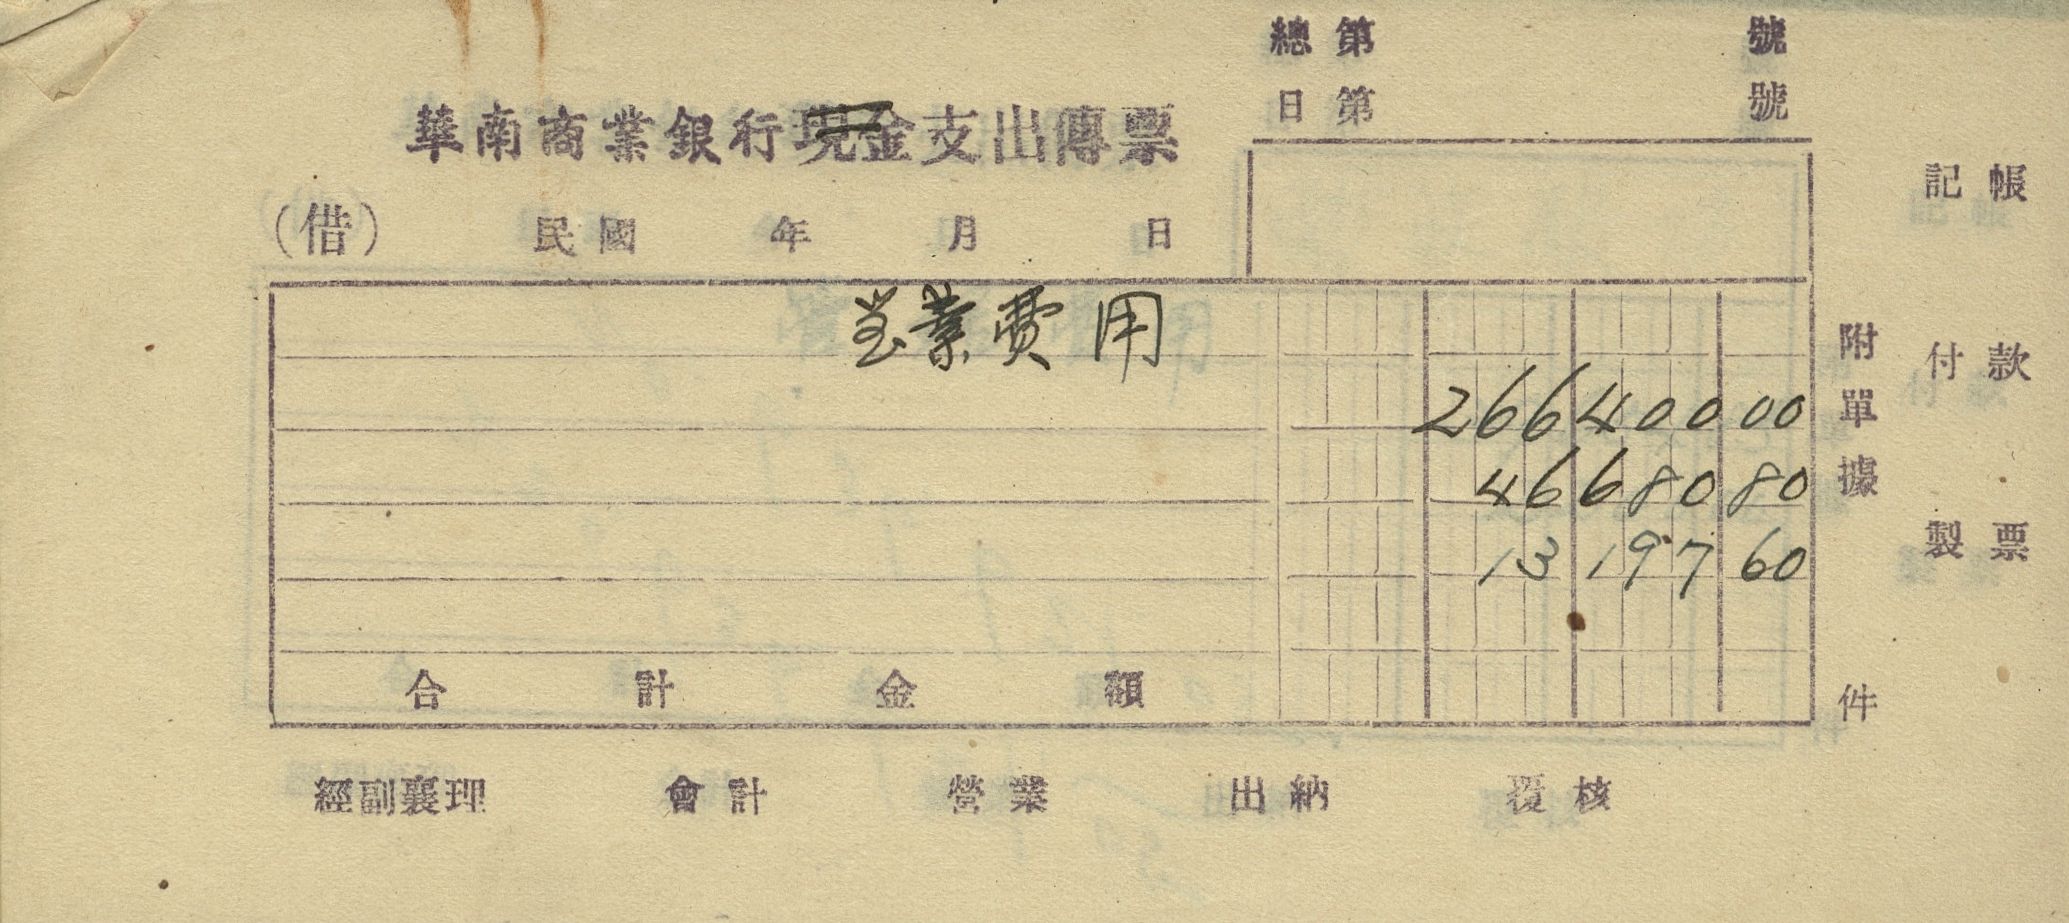 總第 號
日第 號
華南商業銀行現金支出傳票
(借) 民國 年 月 日
营業費用
266400000
4668080
1319760
合計金額
附單據 件
記帳
付款
製票
經副襄理 會計 營業 出納 覆核